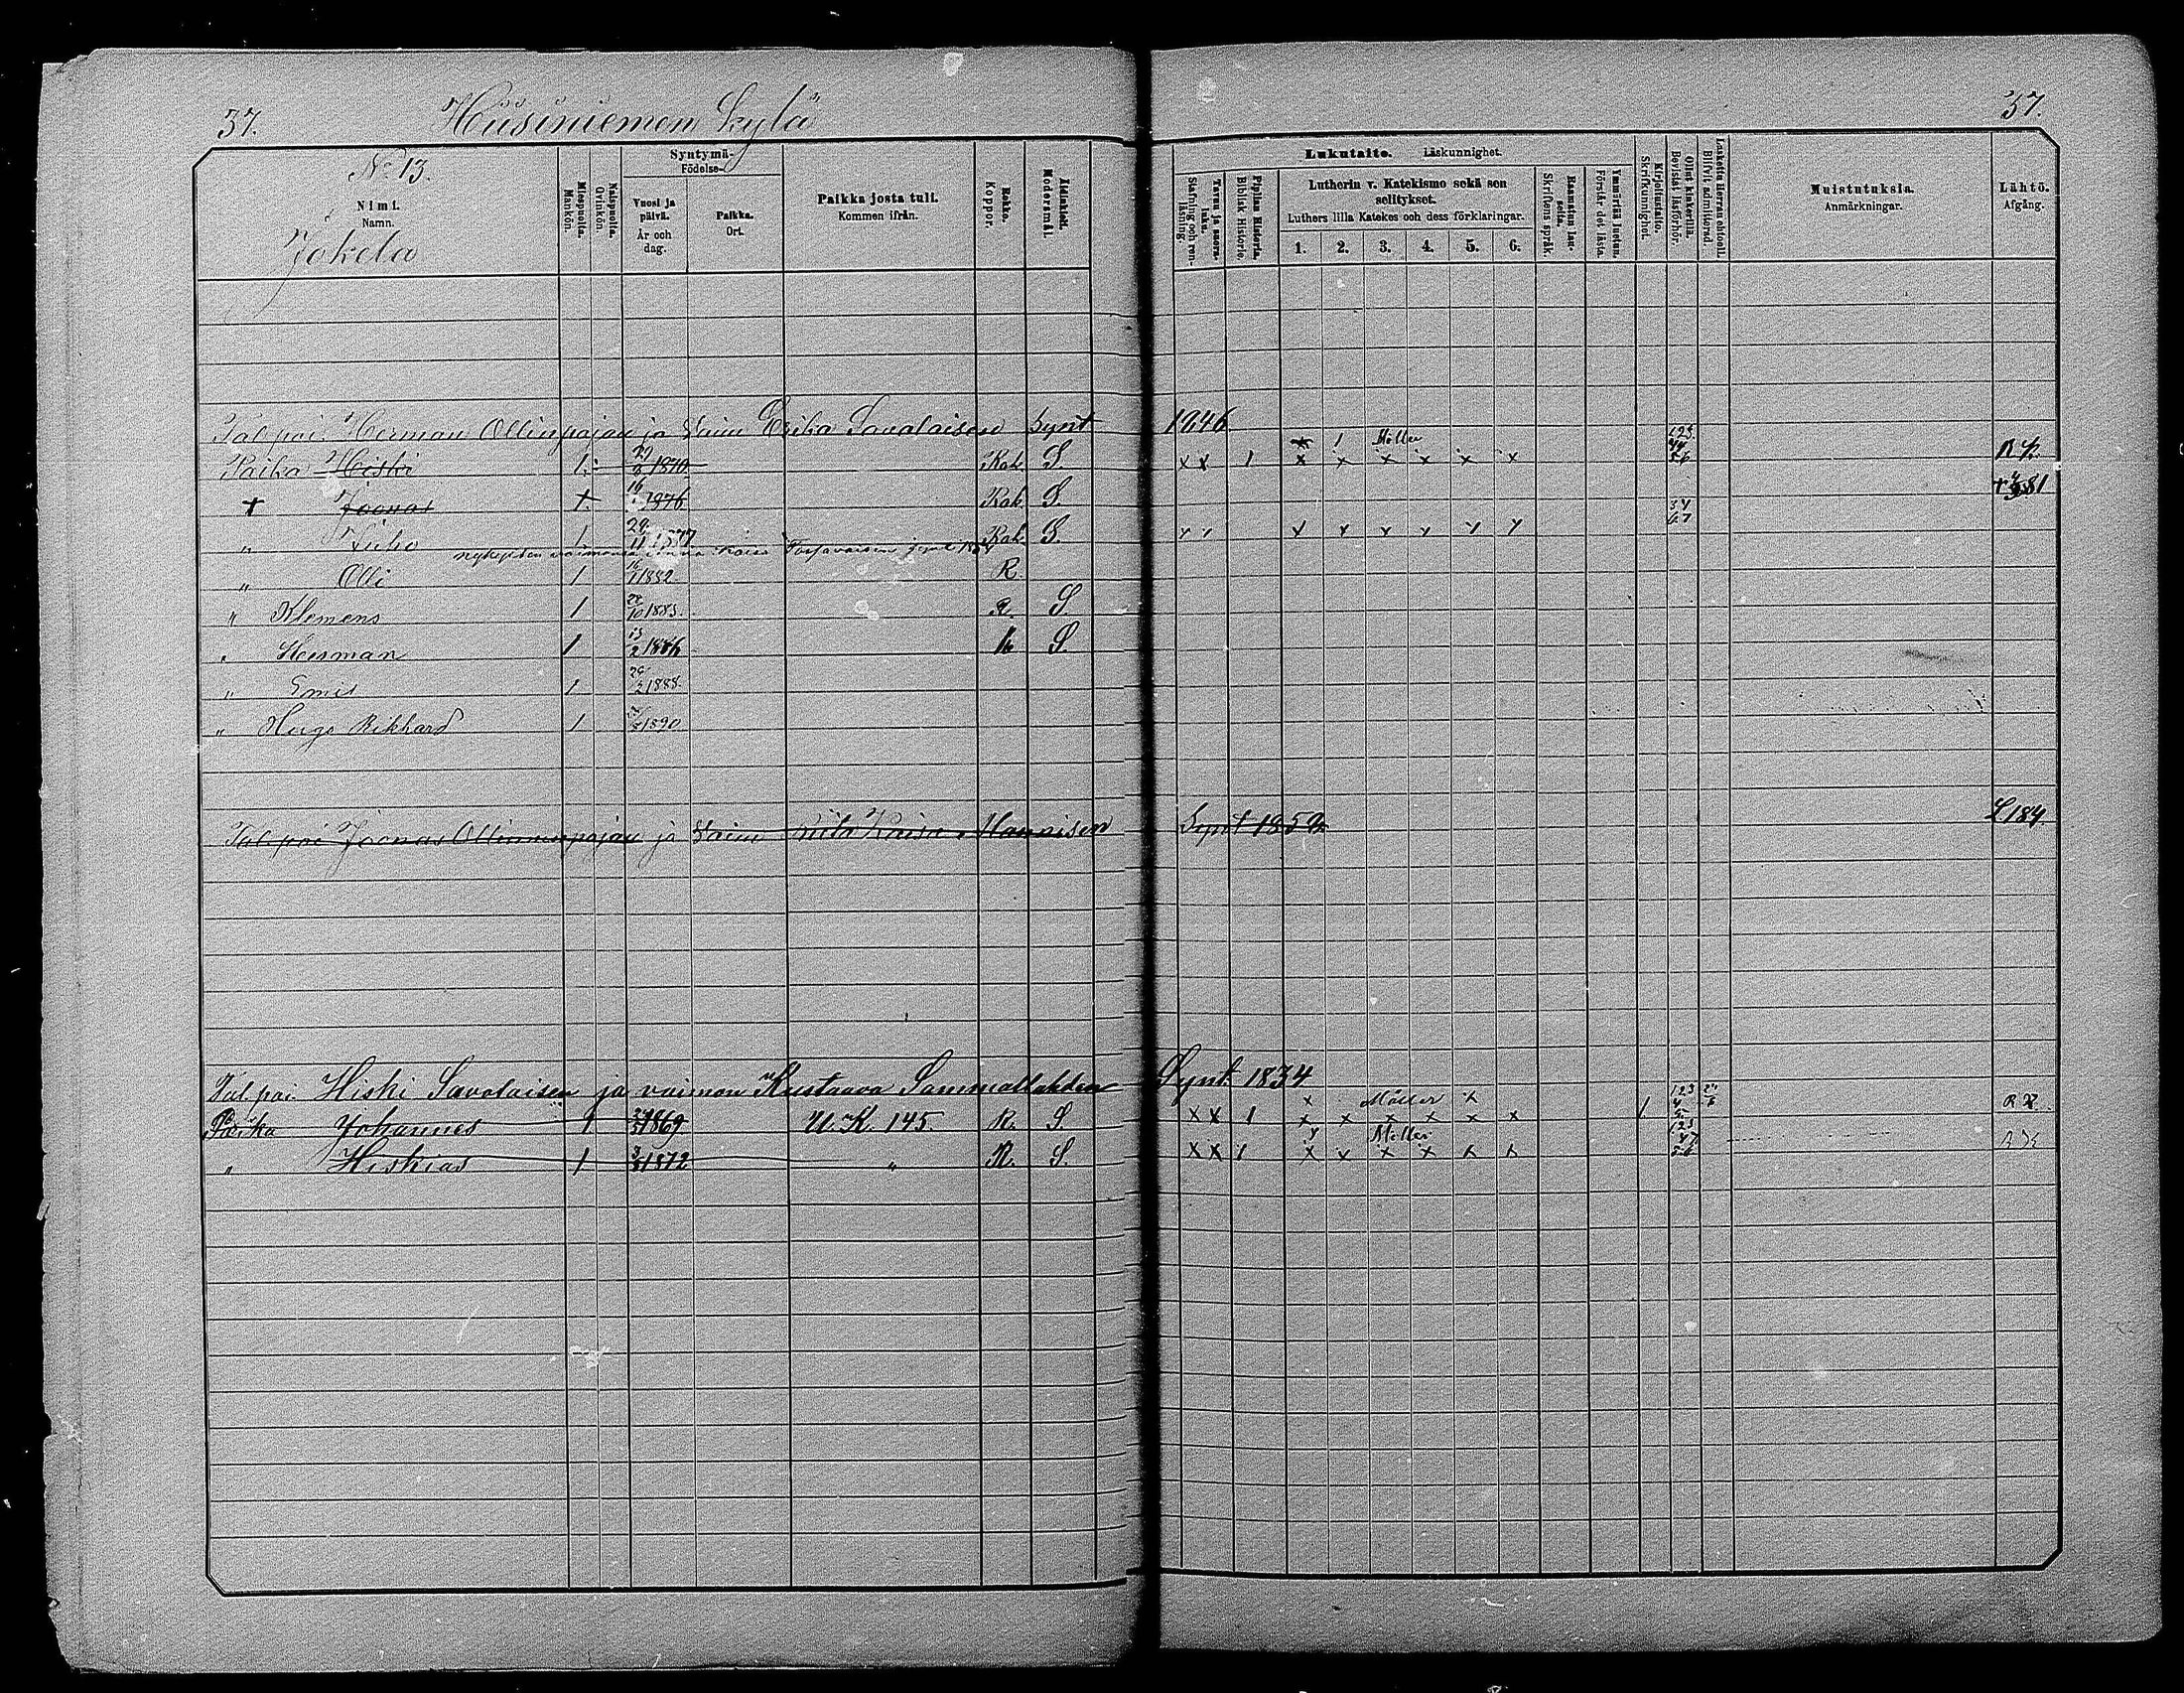 37.
Hiisiniemen kylä
37.
No 13.
Nimi.
Namn.
Jokela
Miespuolia.
Mankön.
Naispuolia.
Qvinkön.
Syntymä-
Födelse-
Vuosi ja päivä.
År och dag.
Paikka.
Ort.
Paikka josta tuli.
Kommen ifrån.
Rokko.
Koppor.
Äidinkieli.
Modersmål.
Lukutaito. Läskunnighet.
Tavau ja suora luku.
Stafning och ren-läsning.
Piplian Historia.
Biblisk Historie.
Lutherin v. Katekismo sekä sen selitykset.
Luthers lilla Katekes och dess förklaringar.
1. 2. 3. 4. 5. 6.
Raamatun lau-seita.
Skriftens språk.
Ymmärtää luetun.
Förstår det lästa.
Kirjoitustaito.
Skrifkunnighet.
Ollut kinkerillä.
Bevistat läsförhör.
Laskettu Herran ehtooll.
Blifvit admitterad.
Muistutuksia.
Anmärkningar.
Lähtö.
Afgång.
Tal. poi. Herman Ollinpojan ja vaim Erika Savolaisen Synt 1846
Poika Hiski 1. 1870 Rok. S. x x 1 x x x x x x Möller R K.
+ Joonas 1. 16 1876 Rok. S. 81
" Juho 1 29 11 1877 Rok. S.
Olli 1 1882 R.
" Klemens 1 10 1883. R. S.
" Herman 1 13 2 1886 R S.
" Emil 1 2 1888.
" Hugo Rikhard 1 1890.
Tal. poi Joonas Ollinpojan ja vaim Riita Kaisa Mannisen Synt 1859. L 184.
Tal. poi. Hiski Savolaisen ja vaimon Kustaava Sammallahden Synt. 1834
Poika Johannes 1 1869 U. K. 145 R. S. x x 1 x x x x x x Möller 1 R K.
" Hiskias 1 1872 " R. S. x x 1 x x x x x x Möller R K